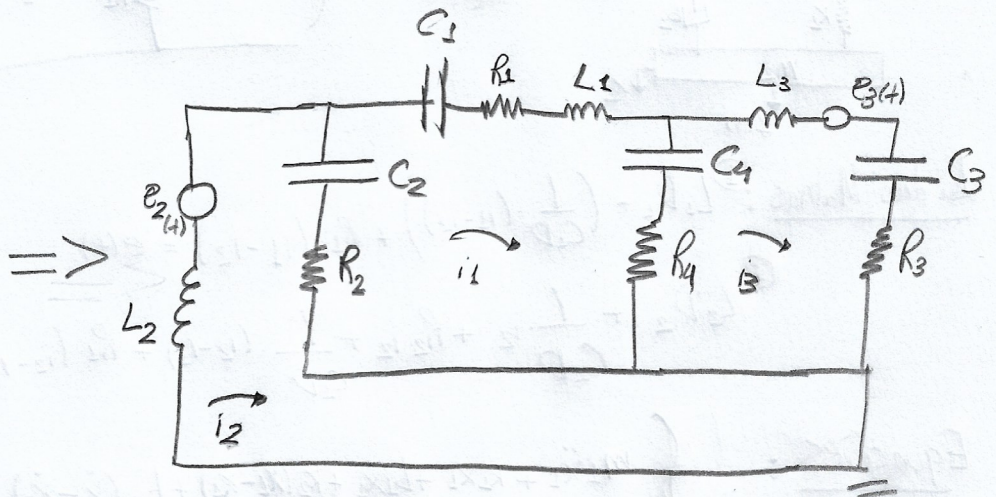 C1
R1
L1
L3
e3(t)
C2
C4
C3
e2(t)
=>
R2
i1
R4
i3
R3
L2
i2